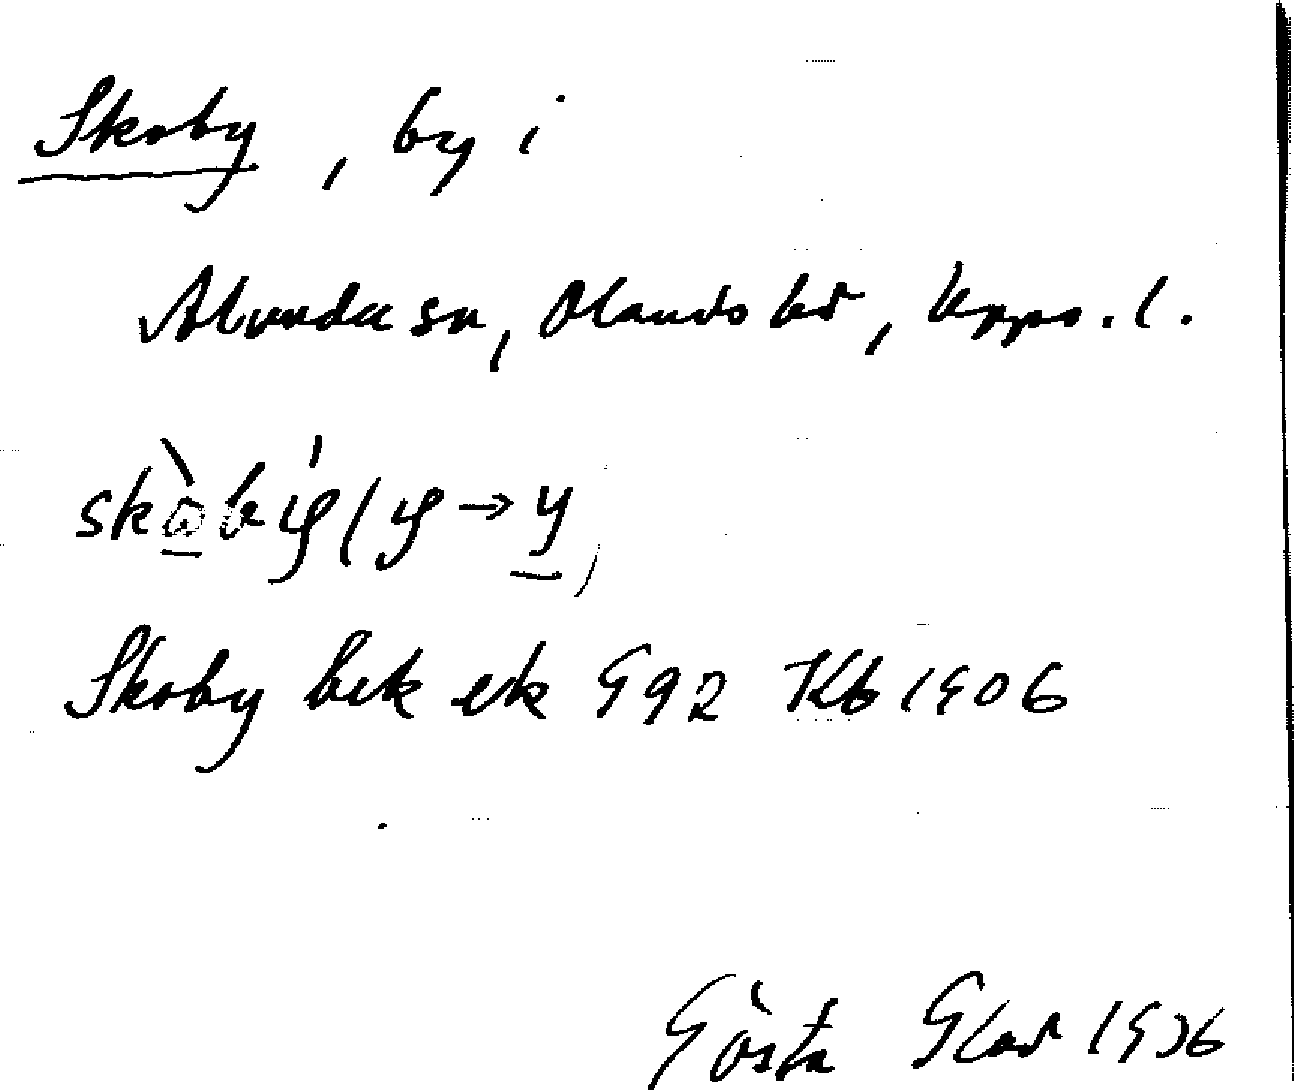 Skoby, by i
Alunda sn, Olands hd, Upps. l.
Skoby bek ek 992 Kb 1906
Gösta Glad 1936